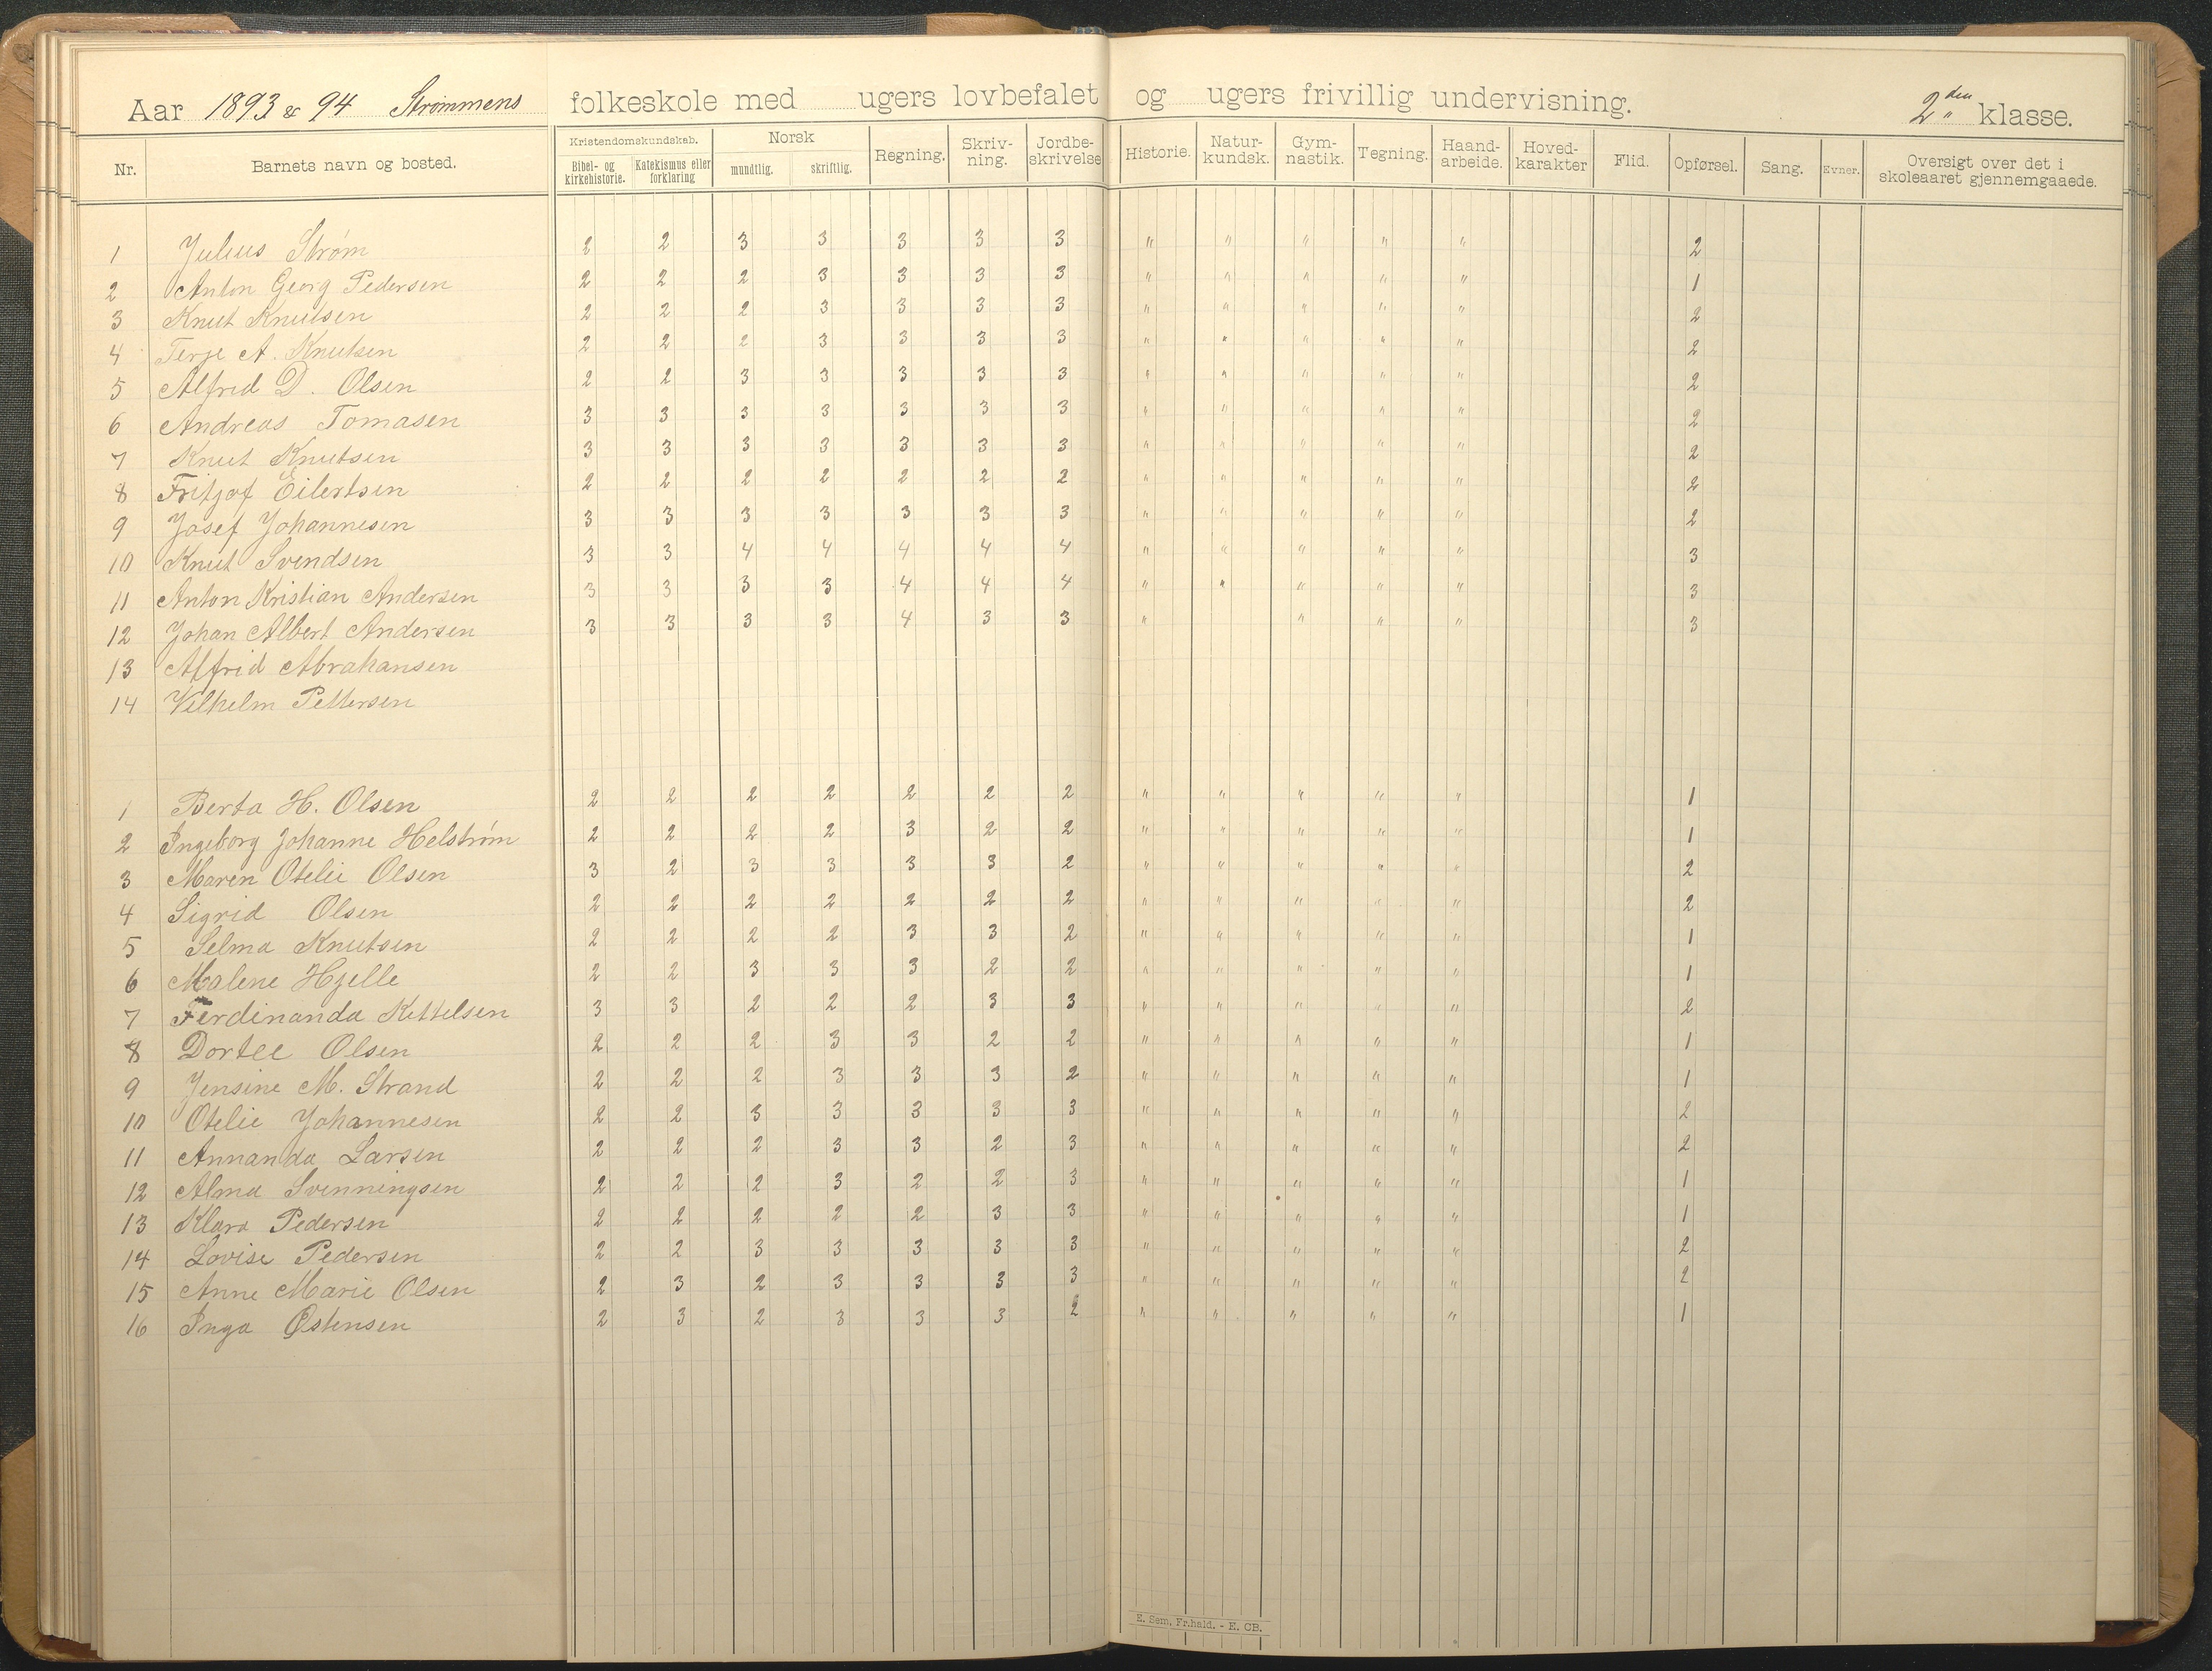 Aar 1893 & 94 Strømmens folkeskole med ugers lovbefalet og ugers frivillig undervisning. 2den klasse.
Nr. Barnets navn og bosted. Kristendomskundskab. Bibel- og kirkehistorie. Katekismus eller forklaring Norsk mundtlig. skriftlig. Regning. Skriv-ning. Jordbe-skrivelse Historie. Natur-kundsk. Gym-nastik. Tegning. Haand-arbeide. Hoved-karakter Flid. Opførsel. Sang. Evner. Oversigt over det i skoleaaret gjennemgaaede.
1 Julius Strøm 2 2 3 3 3 3 3 " " " " " 2
2 Anton Georg Pedersen 2 2 2 3 3 3 3 " " " " " 1
3 Knut Knutsen 2 2 2 3 3 3 3 " " " " " 2
4 Terje A. Knutsen 2 2 2 3 3 3 3 " " " " " 2
5 Alfred D. Olsen 2 2 3 3 3 3 3 " " " " " 2
6 Andreas Tomasen 3 3 3 3 3 3 3 " " " " " 2
7 Knut Knutsen 3 3 3 3 3 3 3 " " " " " 2
8 Fritjof Eilertsen 2 2 2 2 2 2 2 " " " " " 2
9 Josef Johannesen 3 3 3 3 3 3 3 " " " " " 2
10 Knut Svendsen 3 3 4 4 4 4 4 " " " " " 3
11 Anton Kristian Andersen 3 3 3 3 4 4 4 " " " " " 3
12 Johan Albert Andersen 3 3 3 3 4 3 3 " " " " 3
13 Alfrid Abrahansen
14 Vilhelm Pettersen
1 Berta H. Olsen 2 2 2 2 2 2 2 " " " " " 1
2 Ingeborg Johanne Helstrøm 2 2 2 2 3 2 2 " " " " " 1
3 Maren Otelie Olsen 3 2 3 3 3 3 2 " " " " " 2
4 Sigrid Olsen 2 2 2 2 2 2 2 " " " " " 2
5 Selma Knutsen 2 2 2 2 3 3 2 " " " " " 1
6 Malene Hjelle 2 2 3 3 3 2 2 " " " " " 1
7 Ferdinanda Kittelsen 3 3 2 2 2 3 3 " " " " " 2
8 Dortee Olsen 2 2 2 3 3 2 2 " " " " " 1
9 Jensine M. Strand 2 2 2 3 3 3 2 " " " " " 1
10 Otelie Johannesen 2 2 3 3 3 3 3 " " " " " 2
11 Annanda Larsen 2 2 2 3 3 2 3 " " " " " 2
12 Alma Svenningsen 2 2 2 3 2 2 3 " " " " " 1
13 Klara Pedersen 2 2 2 2 2 3 3 " " " " " 1
14 Lovise Pedersen 2 2 3 3 3 3 3 " " " " " 2
15 Anne Marie Olsen 2 3 2 3 3 3 3 " " " " " 2
16 Inga Østensen 2 3 2 3 3 3 2 " " " " " 1
E. Sem, Fr.hald. - E. CB.